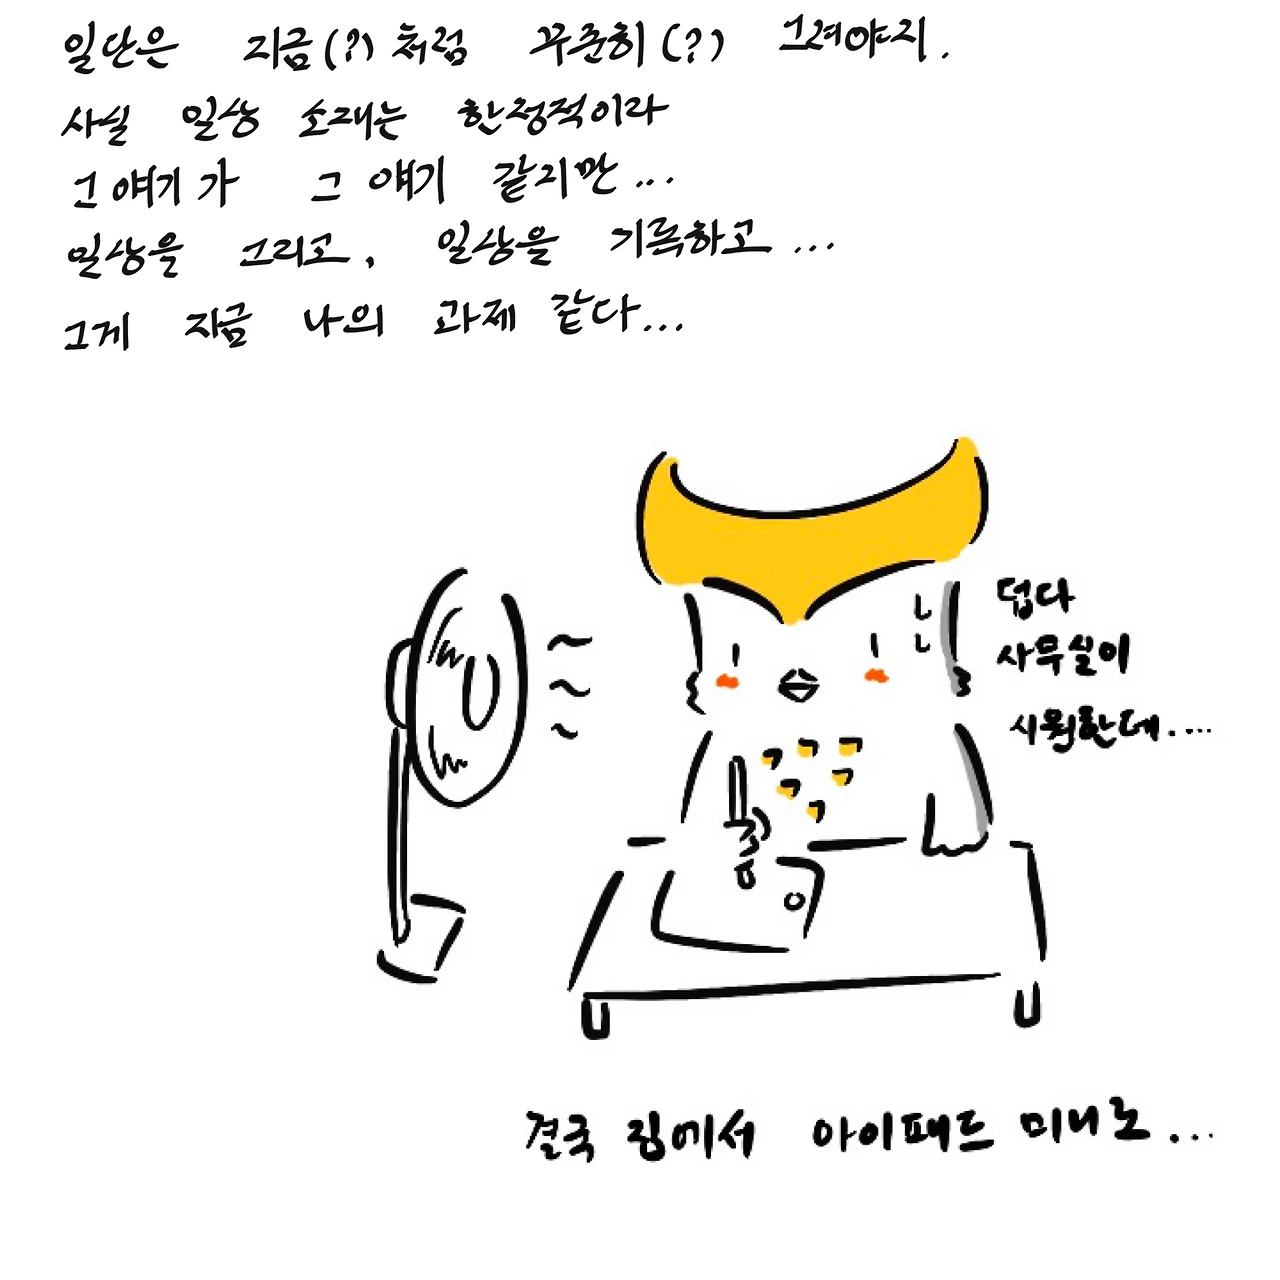 일단은 지금(?)처럼 꾸준히(?) 그려야지.
사실 일상 소재는 한정적이라
그 얘기가 그 얘기 같지만...
일상을 그리고, 일상을 기록하고...
그게 지금 나의 과제 같다...
덥다
사무실이
시원한데....
결국 집에서 아이패드 미니로...